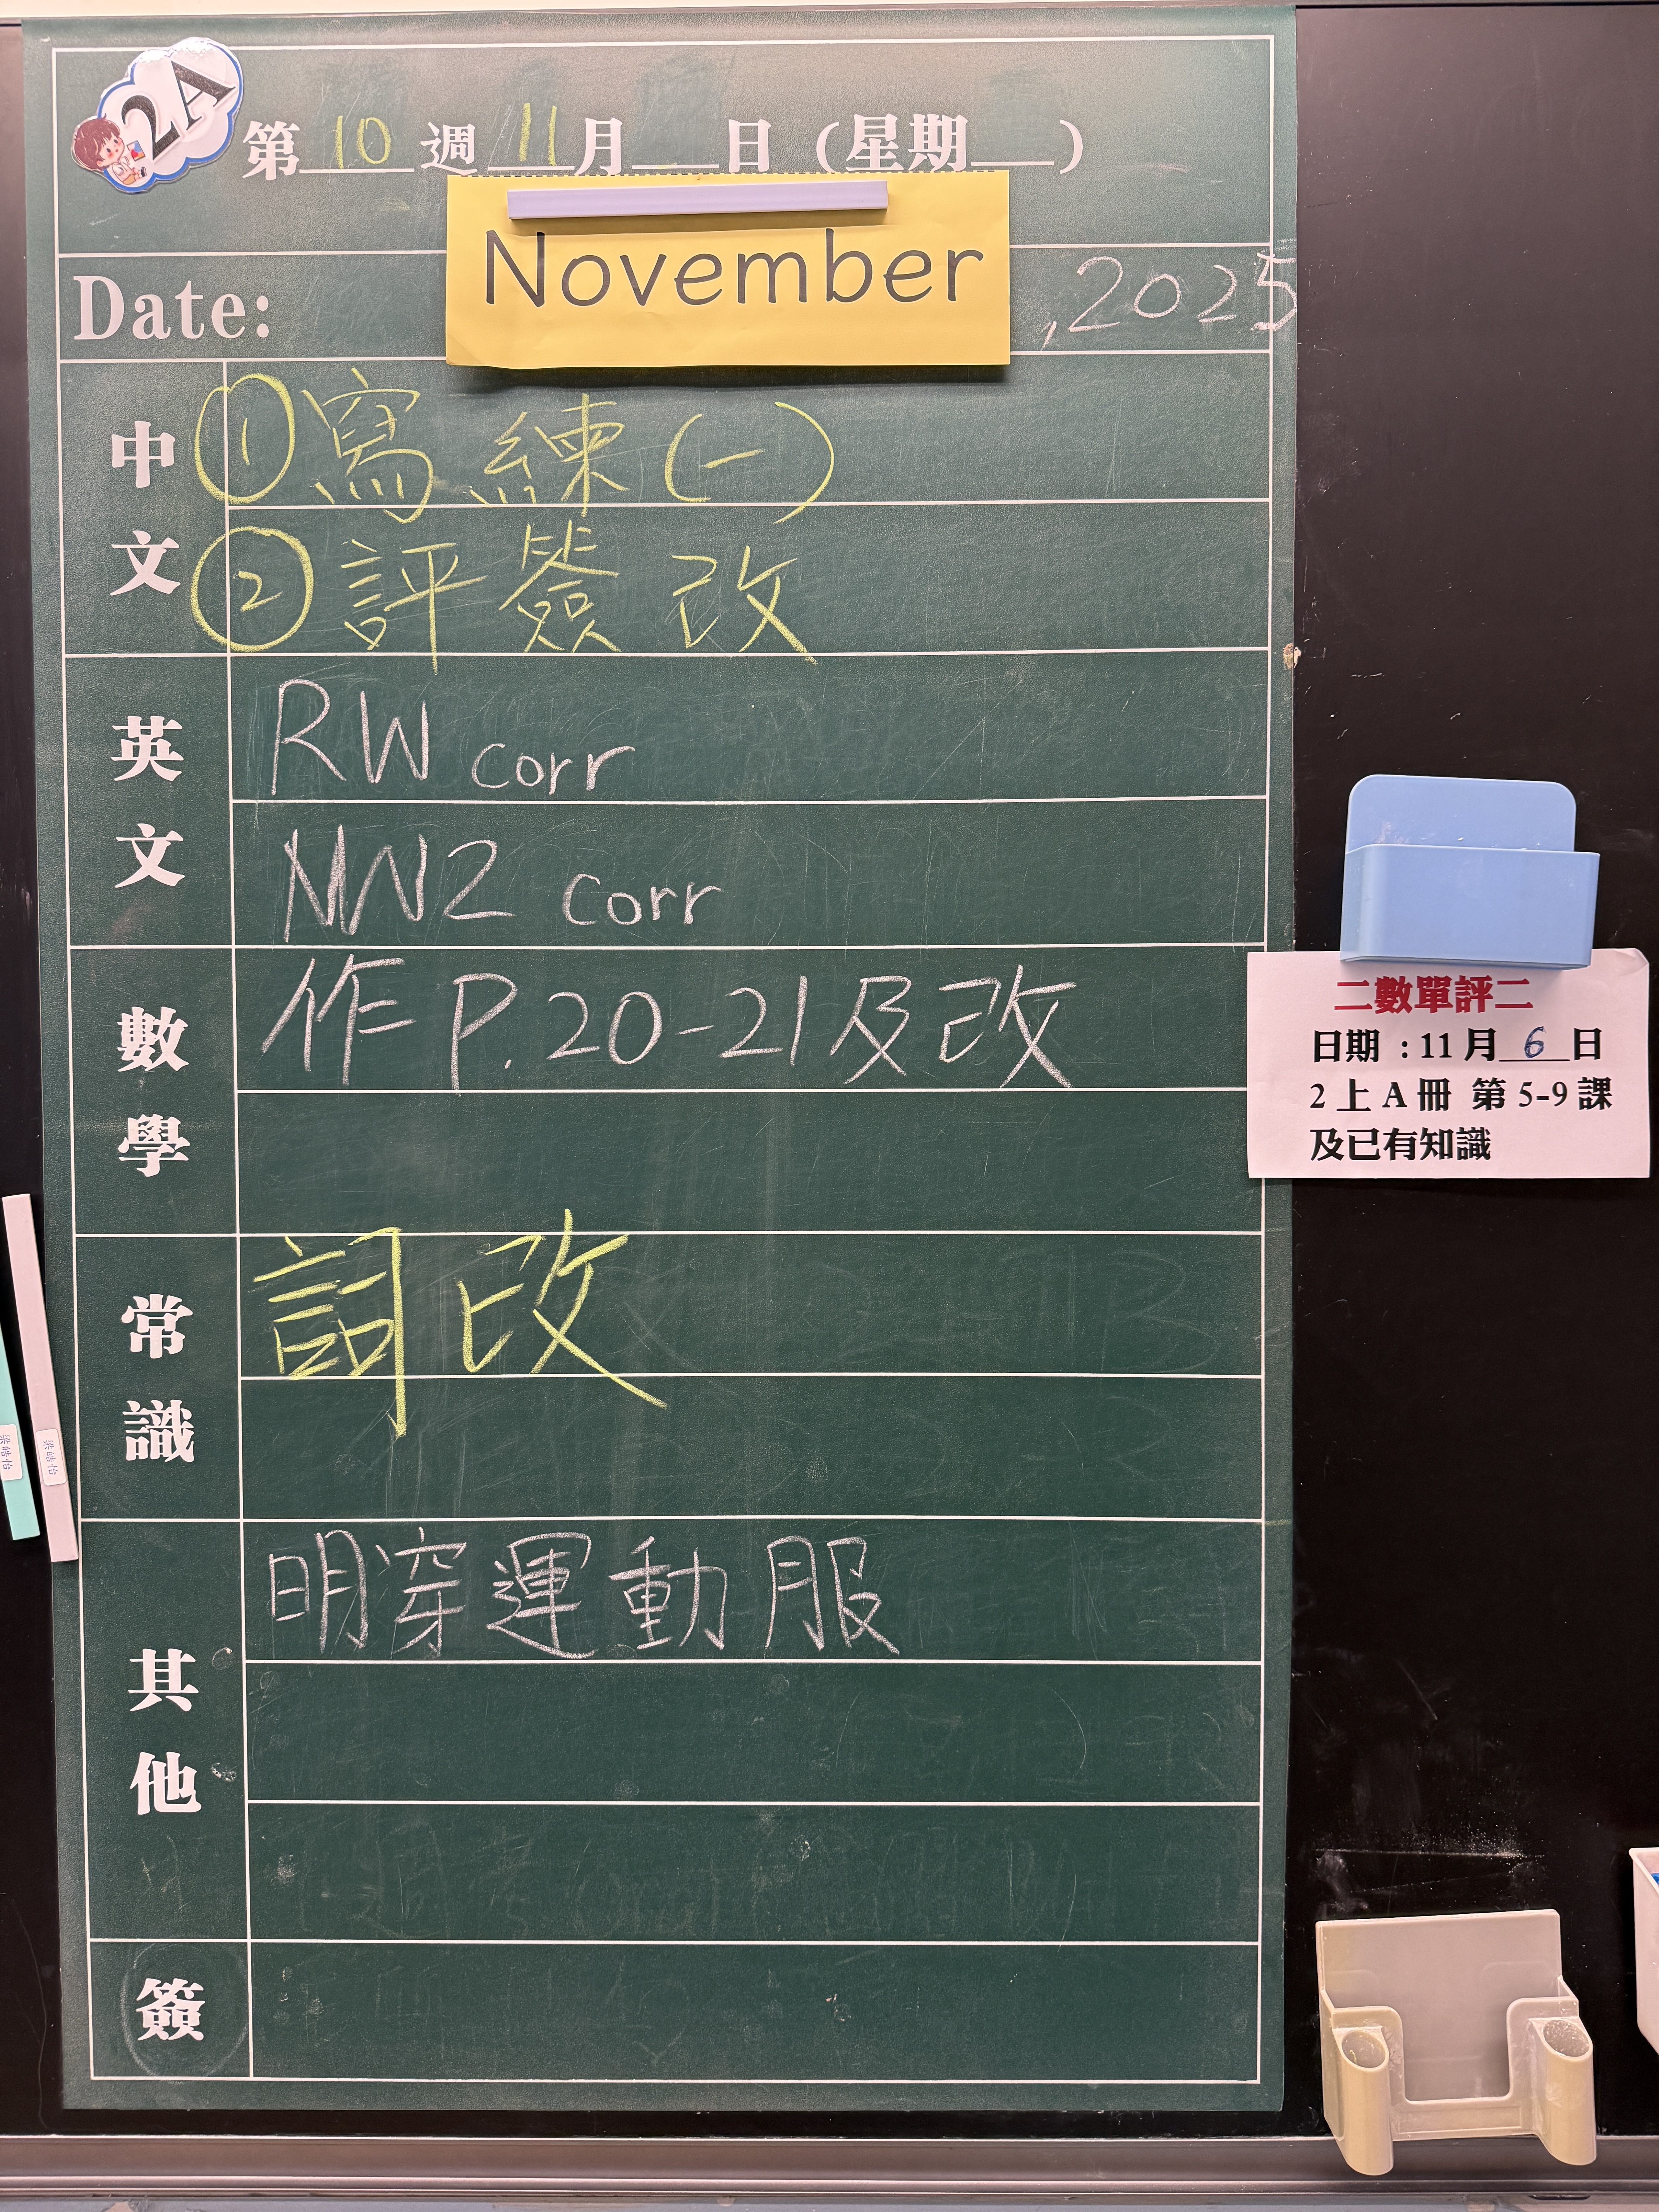 2A
第 10 週 11 月 日 (星期 )
Date: November , 2025
中文
① 寫練(一)
② 評簽改
英文
RW corr
NW2 corr
數學
作 P.20-21及改
二數單評二
日期 : 11 月 6 日
2 上 A 冊 第 5-9 課
及已有知識
常識
詞改
其他
明穿運動服
簽
梁皓怡
梁皓怡